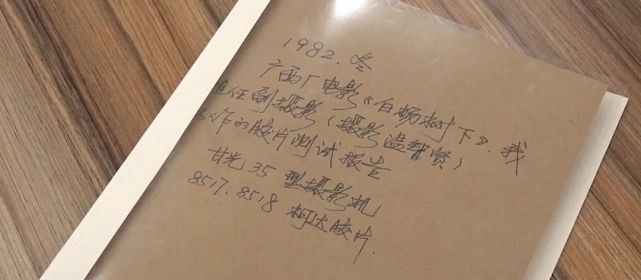 1982.冬
广西厂电影《白杨树下》.我
担任副摄影(摄影温智贤)
工作的胶片测试报告
甘光35型摄影机
8517.8518 柯达胶片.